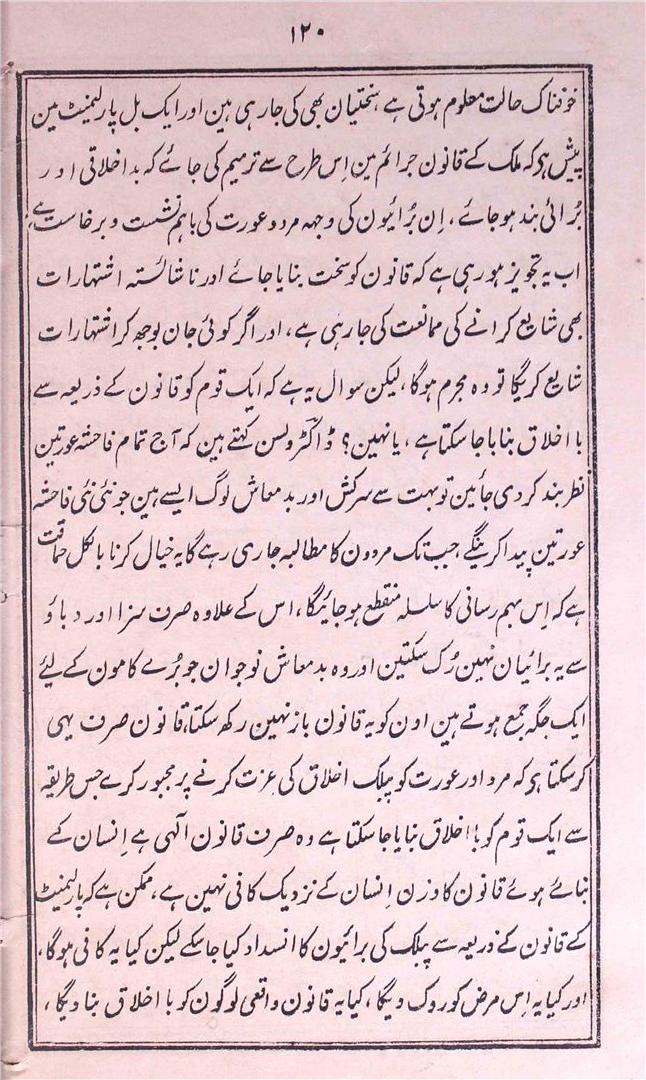 ۱۲۰
خوفناک حالت معلوم ہوتی ہے سختیان بھی کی جا رہی ہین اور ایک بل پارلیمنٹ مین
پیش ہی کہ ملک کے قانون جرائم مین اِس طرح سے ترمیم کی جائے کہ بد اخلاقی اور
بُرائی بند ہو جائے، اِن بُرائیون کی وجہہ مرد و عورت کی باہم نشست و برخاست ہے،
اب یہ تجویز ہو رہی ہے کہ قانون کو سخت بنایا جائے اور ناشائستہ اشتہارات
بھی شایع کرانے کی ممانعت کی جا رہی ہے، اور اگر کوئی جان بوجھ کر اشتہارات
شایع کریگا تو وہ مجرم ہوگا، لیکن سوال یہ ہے کہ ایک قوم کو قانون کے ذریعہ سے
با اخلاق بنایا جا سکتا ہے، یا نہین؟ ڈاکٹر ولسن کہتے ہین کہ آج تمام فاحشہ عورتین
نظر بند کر دی جائین تو بہت سے سرکش اور بد معاش لوگ ایسے ہین جو نئی نئی فاحشہ
عورتین پیدا کرینگے جب تک مردون کا مطالبہ جاری رہے گا یہ خیال کرنا بالکل حماقت
ہے کہ اِس بہم رسانی کا سلسلہ منقطع ہو جائیگا، اس کے علاوہ صرف سزا اور دباؤ
سے یہ برائیان نہین رُک سکتین اور وہ بد معاش نوجوان جو بُرے کامون کے لیٔے
ایک جگہ جمع ہوتے ہین اون کو یہ قانون باز نہین رکھ سکتا، قانون صرف یہی
کر سکتا ہی کہ مرد اور عورت کو پبلک اخلاق کی عزت کرنے پر مجبور کرے جس طریقہ
سے ایک قوم کو با اخلاق بنایا جا سکتا ہے وہ صرف قانون الٰہی ہے اِنسان کے
بنائے ہوئے قانون کا وزن اِنسان کے نزدیک کافی نہین ہے، ممکن ہے کہ پارلیمنٹ
کے قانون کے ذریعہ سے پبلک کی برائیون کا انسداد کیا جا سکے لیکن کیا یہ کافی ہوگا،
اور کیا یہ اِس مرض کو روک دیگا، کیا یہ قانون واقعی لوگون کو با اخلاق بنا دیگا،